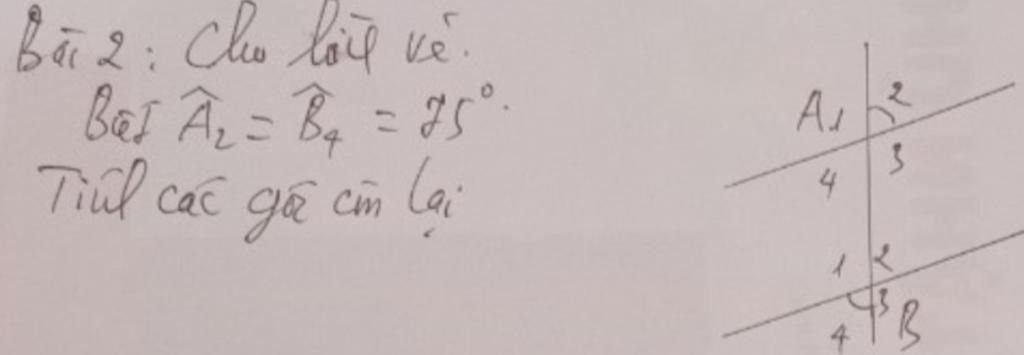 Bài 2: Cho hình vẽ.
Biết Â₂ = B̂₄ = 75°.
Tính các góc còn lại
A 1 2
4 3
1 2
4 3 B